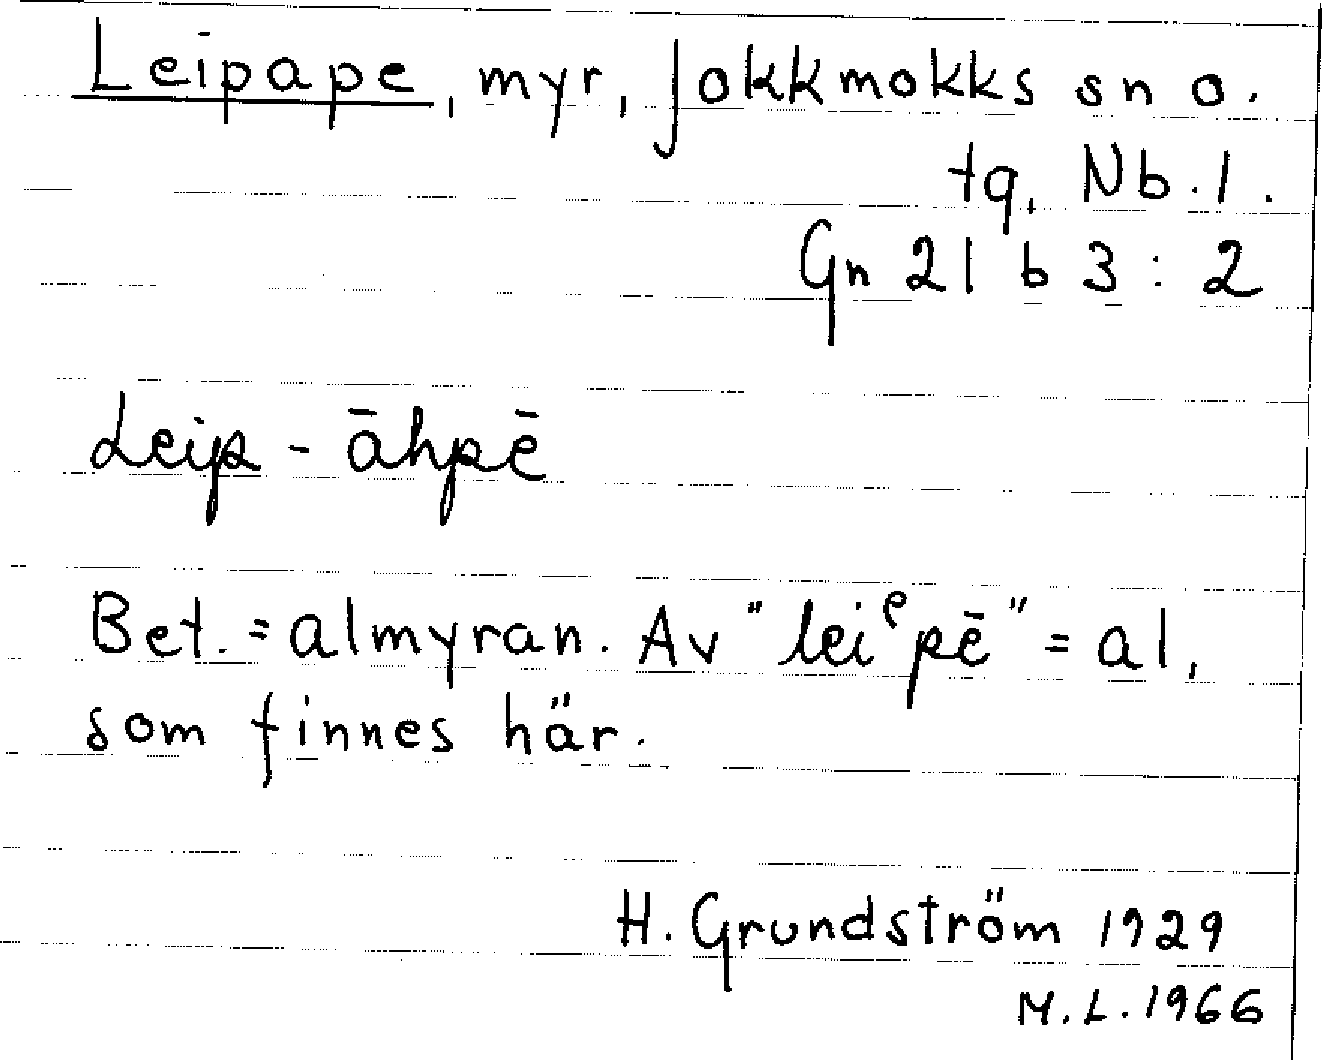 Leipape, myr, Jokkmokks sn o.
tg, Nb. l.
Gn 21 b 3 : 2
Leip - āhpē
Bet. = almyran. Av "leiᵉpē" = al,
som finnes här.
H. Grundström 1929
M. L. 1966